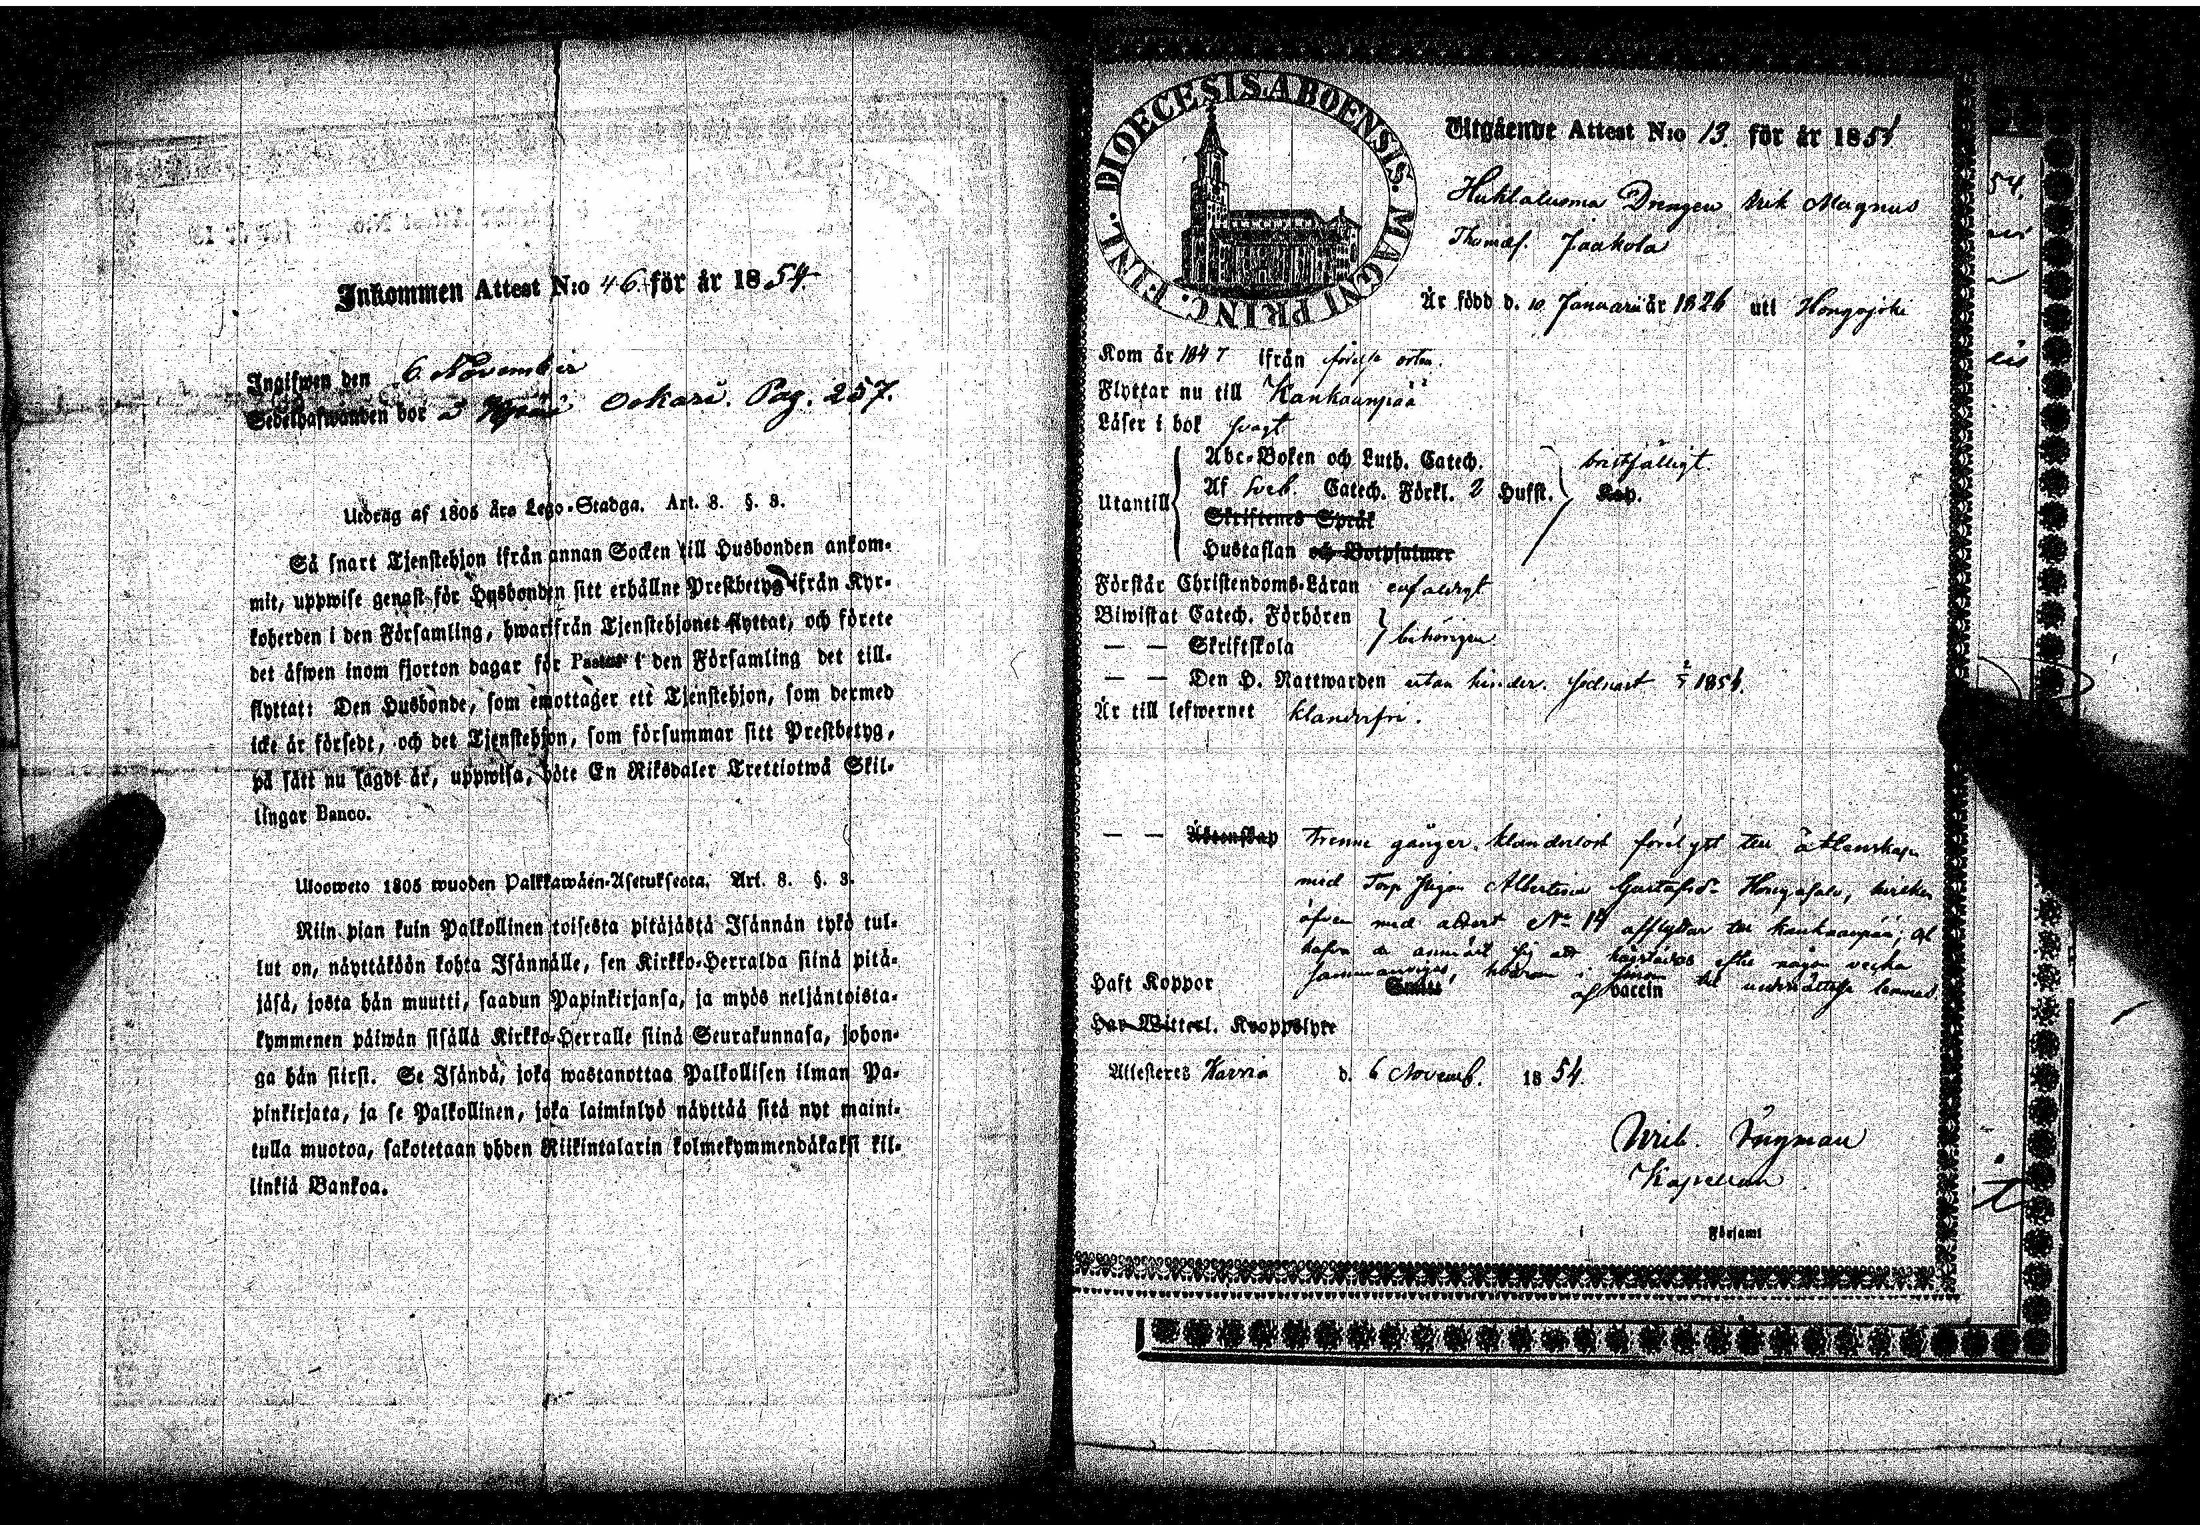 Inkommen Attest N:o 46 för år 1854.
Ingifwen den 6 November
Sedelhafwanden bor Oskari. Pag. 257.
Utdrag af 1805 års Lego-Stadga. Art. 8. §. 8.
Så snart Tjenstehjon ifrån annan Socken till Husbonden ankom-
mit, uppwise genast för Husbonden sitt erhållne Prestbetyg ifrån Kyr-
koherden i den Församling, hwarifrån Tjenstehjonet flyttat, och förete
det äfwen inom fjorton dagar för Pastor i den Församling det till-
flyttat: Den Husbonde, som emottager ett Tjenstehjon, som dermed
icke är försedt, och det Tjenstehjon, som försummar sitt Prestbetyg,
på sätt nu sagdt är, uppwisa, böte En Riksdaler Trettiotwå Skil-
lingar Banco.
Uloosweto 1805 wuoden Palkkawäen-Asetuksesta. Art. 8. §. 3.
Niin pian kuin Palkollinen toisesta pitäjästä Isännän tykö tul-
lut on, näyttäköön kohta Isännälle, sen Kirkko-Herralda siinä pitä-
jäsä, josta hän muutti, saadun Papinkirjansa, ja myös neljäntoista-
kymmenen päiwän sisällä Kirkko-Herralle siinä Seurakunnasa, johon-
ga hän siirsi. Se Isändä, joka wastanottaa Palkollisen ilman Pa-
pinkirjata, ja se Palkollinen, joka laiminlyö näyttää sitä nyt maini-
tulla muotoa, sakotetaan yhden Riikintalarin kolmekymmendäkaksi kil-
linkiä Bankoa.
DIOECESIS ABOENSIS. MAGNI PRINC. FINL.
Utgående Attest N:o 13. för år 1854
Drengen Erik Magnus
Thomæs. Jaakola
Är född d. 10 Januari år 1826 uti Hongojoki
Kom år 1847 ifrån orten.
Flyttar nu till Kankaanpää
Läser i bok svagt
Utantill
Abc-Boken och Luth. Catech. bristfälligt.
Af Sveb. Catech. Förkl. 2 Hufst. Kap.
Skriftenes Språk
Hustaflan och Botpsalmer
Förstår Christendoms-Läran enfaldigt
Biwistat Catech. Förhören
— — Skriftskola behörigen
— — Den H. Nattwarden utan hinder. sednast 1854.
Är till lefwernet klanderfri.
— — Äktenskap Trenne gånger klanderlöst förelyst till äktenskap
med Torp. Pigan Albertina Gustafsd. Hongasalo, hvilken
äfven med attest No 14 afflyttar till Kankaanpää,
hafva de anmält sig att efter någon vecka
sammanvigas,
Haft Koppor Smitt af vaccin
Har Witterl. Kroppslyte
Attesteres Karvia d. 6 Novemb. 1854.
Erik Ingman
Kapellan
i Församl
54.